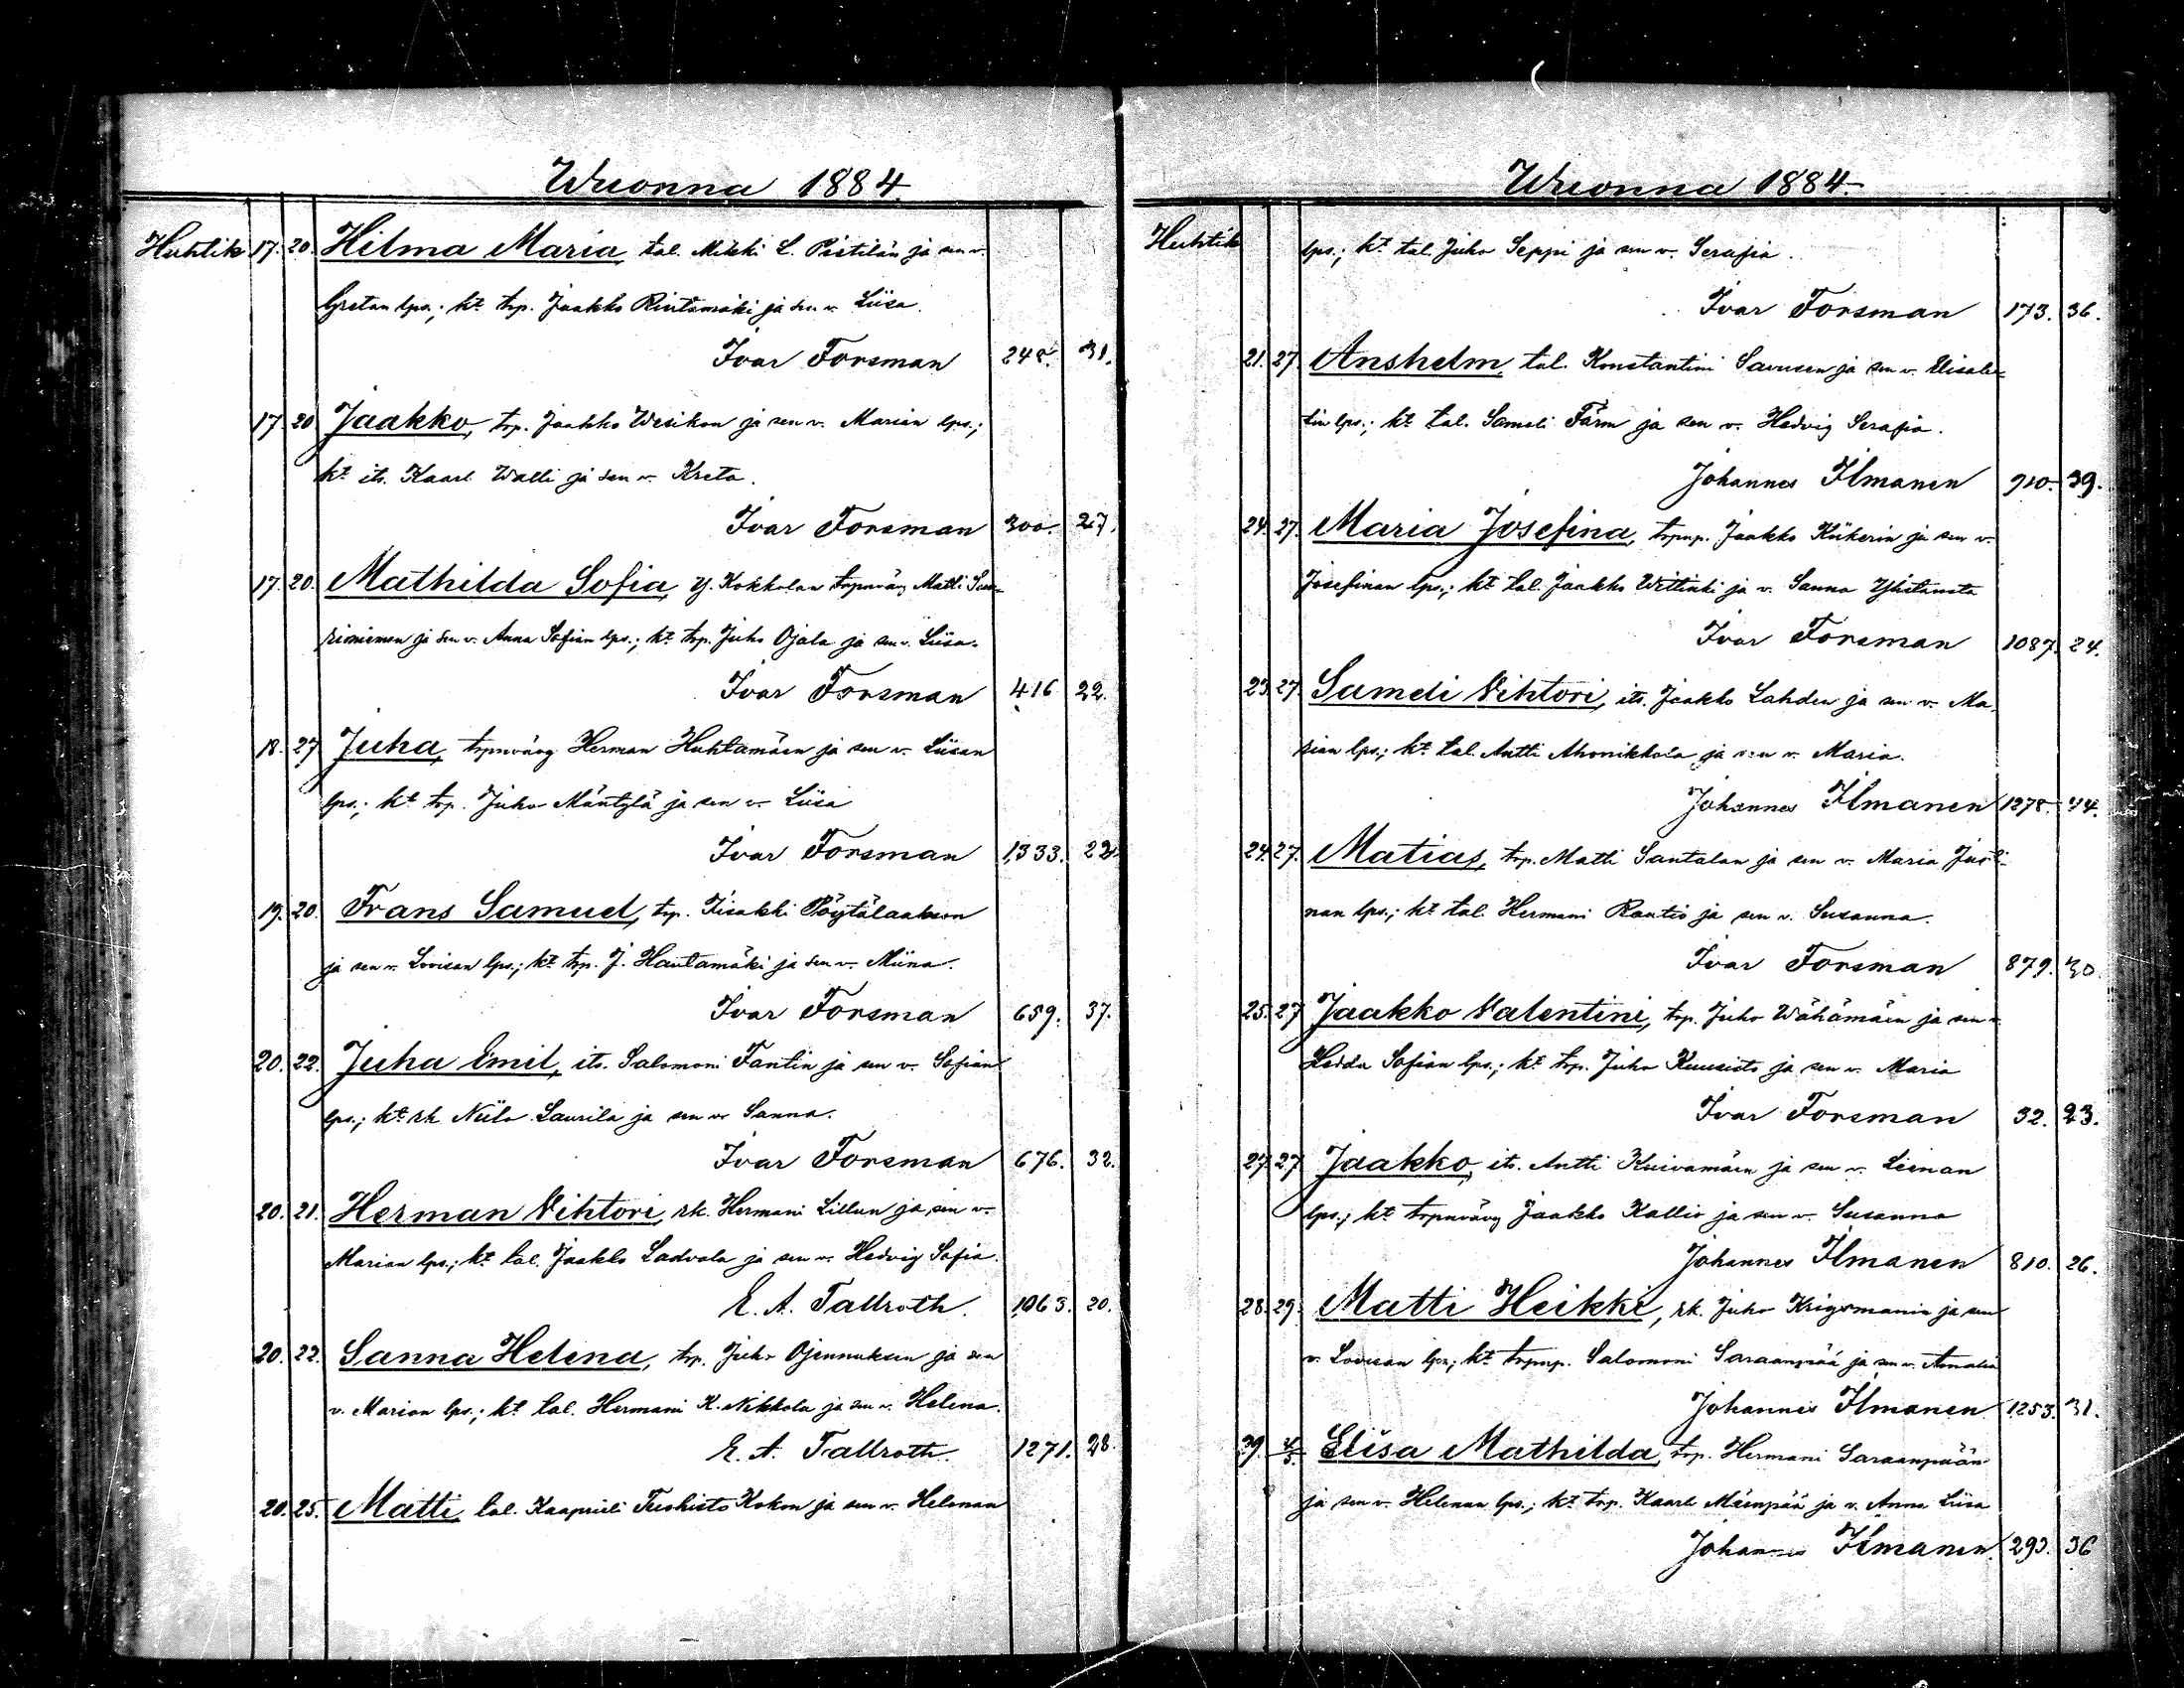 Wuonna 1884.
Huhtik 17. 20. Hilma Maria, tal. Mikki L. Pistilän ja sen v.
Gretan lps.; kt trp. Jaakko Rintamäki ja sen v. Liisa.
Ivar Forsman 248. 31.
17. 20 Jaakko, trp. Jaakko Wesikon ja sen v. Marian lps.;
kt its. Kaarl Walli ja sen v. Kreta.
Ivar Forsman 300. 27.
17. 20. Mathilda Sofia, Y. Kokkolan trpnväv Matti
ja sen v. Anna Sofian lps.; kt trp. Juho Ojala ja sen v. Liisa.
Ivar Forsman 416 22.
18. 27 Juha, trpnvävy Herman Huhtamäen ja sen v. Liisan
lps.; kt trp. Juho Mäntylä ja sen v. Liisa
Ivar Forsman 1333. 22
19. 20. Frans Samuel, trp. Iisakki Pöytälaakson
ja sen v. Lovisan lps.; kt trp. J. Hautamäki ja sen v. Miina.
Ivar Forsman 659. 37.
20. 22. Juha Emil, its. Salomoni Fantin ja sen v. Sofian
lps.; kt rk Niilo Laurila ja sen v. Sanna.
Ivar Forsman 676. 32.
20. 21. Herman Vihtori, rk. Hermani Lillun ja sen v.
Marian lps.; kt tal. Jaakko Ladvala ja sen v. Hedvig Sofia.
E. A. Tallroth. 1063. 20.
20. 22. Sanna Helena, trp. Juho Ojennuksen ja sen
v. Marian lps.; kt tal. Hermani K. Nikkola ja sen v. Helena.
E. A. Tallroth. 1271. 28.
20. 25. Matti, tal. Kaaprieli Tuohisto Kokon ja sen v. Helenan
Wuonna 1884.
Huhtik lps.; kt tal. Juho Seppi ja sen v. Serafia.
Ivar Forsman 173. 36.
21. 27. Anshelm, tal. Konstantini Savusen ja sen v. Elisabe-
tin lps.; kt tal. Sameli Färm ja sen v. Hedvig Serafia.
Johannes Ilmanen 910. 39.
24. 27. Maria Josefina, trpnp. Jaakko Kükerin ja sen v.
Josefinan lps.; kt tal. Jaakko Wittinki ja v. Sanna
Ivar Forsman 1087. 24.
23 27 Sameli Vihtori, its. Jaakko Lahden ja sen v. Ma-
rian lps.; kt tal. Antti Ahonikkola ja sen v. Maria.
Johannes Ilmanen 1278. 44.
24. 27. Matias, trp. Matti Santalan ja sen v. Maria Justi-
nan lps.; kt tal. Hermani Rautio ja sen v. Susanna.
Ivar Forsman 879. 30.
25. 27 Jaakko Valentini, trp. Juho Wähämäen ja sen v.
Ledda Sofian lps.; kt trp. Juho Kuusisto ja sen v. Maria
Ivar Forsman 32. 23.
27. 27 Jaakko, its. Antti Kuivamäen ja sen v. Lienan
lps.; kt trpnvävy Jaakko Kallio ja sen v. Susanna
Johannes Ilmanen 810. 26.
28. 29. Matti Heikki, rk. Juho Krigsmanin ja sen
v. Lovisan lps.; kt trpnp. Salomoni Saraanpää ja sen v. Amalia
Johannes Ilmanen 1253. 31.
29. 4/5. Eliisa Mathilda, trp. Hermani Saraanpään
ja sen v. Helenan lps.; kt trp. Kaarle Mäenpää ja v. Anna Liisa
Johannes Ilmanen. 293. 36